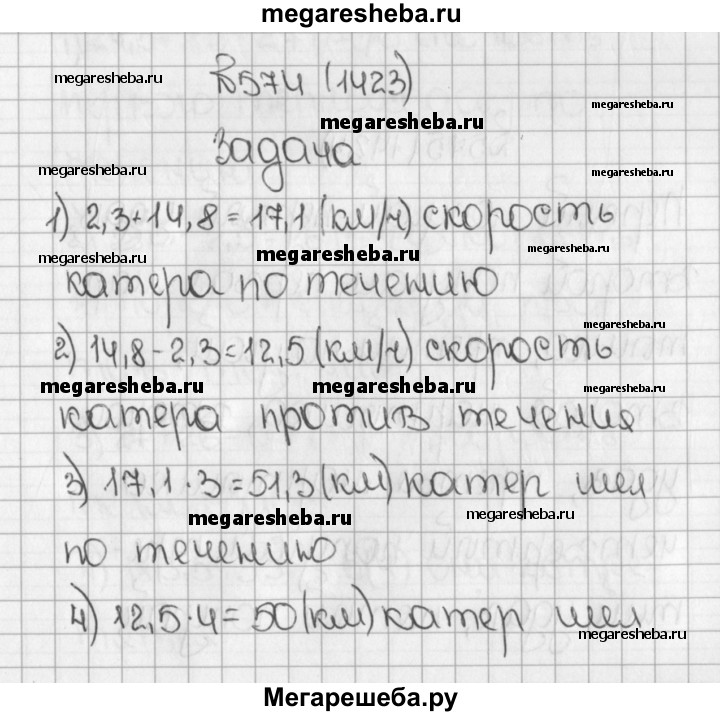 megaresheba.ru
№574 (1423)
megaresheba.ru
megaresheba.ru
megaresheba.ru
Задача
megaresheba.ru
megaresheba.ru
1) 2,3+14,8=17,1(км/ч) скорость
megaresheba.ru
megaresheba.ru
megaresheba.ru
катера по течению
megaresheba.ru
2) 14,8-2,3=12,5(км/ч) скорость
megaresheba.ru
megaresheba.ru
megaresheba.ru
катера против течения
3) 17,1·3=51,3(км) катер шел
megaresheba.ru
megaresheba.ru
по течению
4) 12,5·4=50(км) катер шел
megaresheba.ru
Мегарешеба.ру